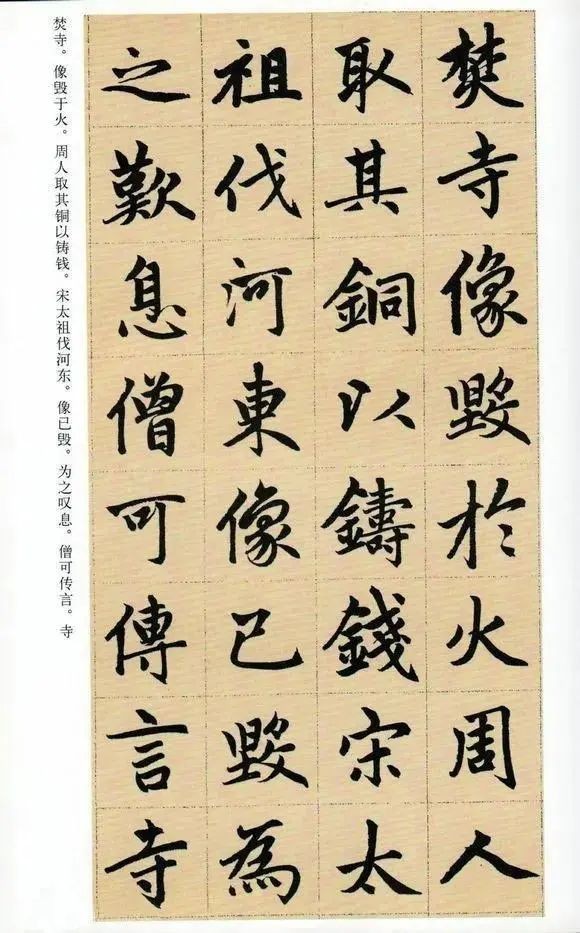 焚寺像毁於火周人
取其銅以鑄錢宋太
祖伐河東像已毁為
之歎息僧可傳言寺
焚寺。像毁于火。周人取其铜以铸钱。宋太祖伐河东。像已毁。为之叹息。僧可传言。寺